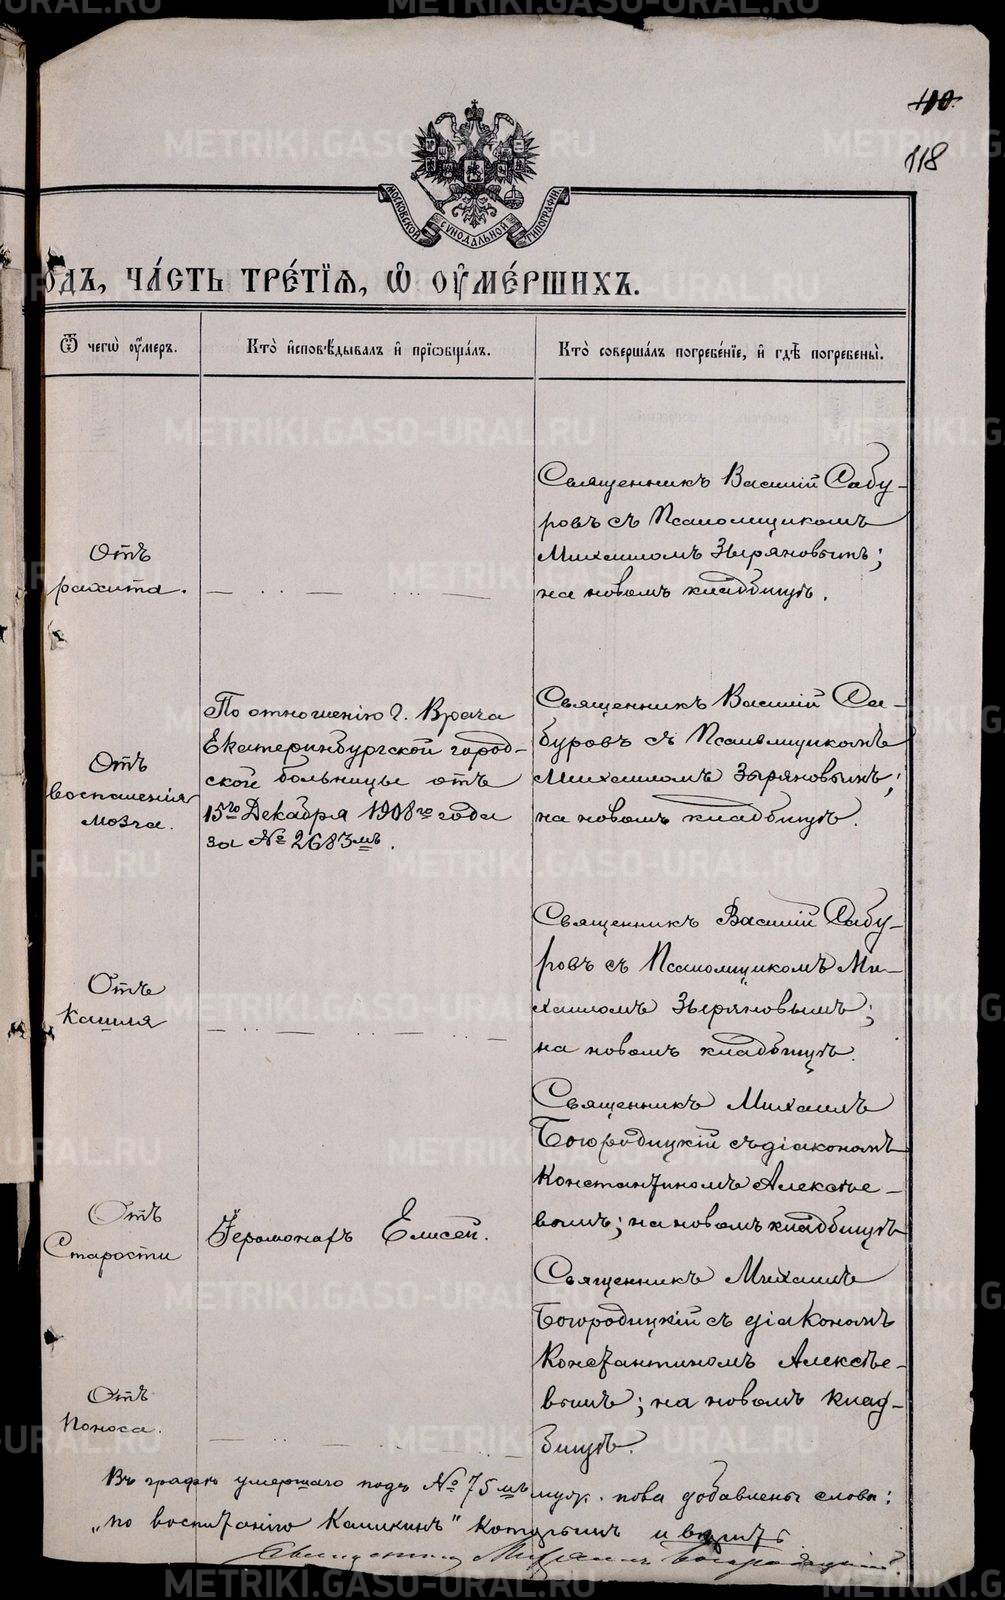 110.
118
МОСКОВСКОЙ СѴНОДАЛЬНОЙ ТИПОГРАФІИ
ОДЪ, ЧА́СТЬ ТРЕ́ТІѦ, Ѡ҆ ОУ҆МЕ́РШИХЪ.
Ѿ чегѡ̀ оу҆́меръ.
Кто̀ и҆сповѣ́дывалъ и҆ прїѡбща́лъ.
Кто̀ соверша́лъ погребе́нїе, и҆ гдѣ̀ погребены̀.
Отъ
рахита.
Священникъ Василій Сабу-
ровъ съ Псаломщикомъ
Михаиломъ Зыряновымъ;
на новомъ кладбищѣ.
Отъ
воспаленія
мозга.
По отношенію г. Врача
Екатеринбургской город-
ской больницы отъ
15го Декабря 1908го года
за № 2683мъ.
Священникъ Василій Са-
буровъ съ Псаломщикомъ
Михаиломъ Зыряновымъ;
на новомъ кладбищѣ.
Отъ
Кашля
Священникъ Василій Сабу-
ровъ съ Псаломщикомъ Ми-
хаиломъ Зыряновымъ;
на новомъ кладбищѣ.
Отъ
Старости
Іеромонахъ Елисей.
Священникъ Михаилъ
Богородицкій съ діакономъ
Константиномъ Алексѣе-
вымъ; на новомъ кладбищѣ
Отъ
Поноса.
Священникъ Михаилъ
Богородицкій съ діакономъ
Константиномъ Алексѣе-
вымъ; на новомъ клад-
бищѣ.
Въ графѣ умершаго подъ № 75мъ муж. пола добавлены слова:
„по воспитанію Каликинъ"
Священникъ Михаилъ Богородицкій.
METRIKI.GASO-URAL.RU